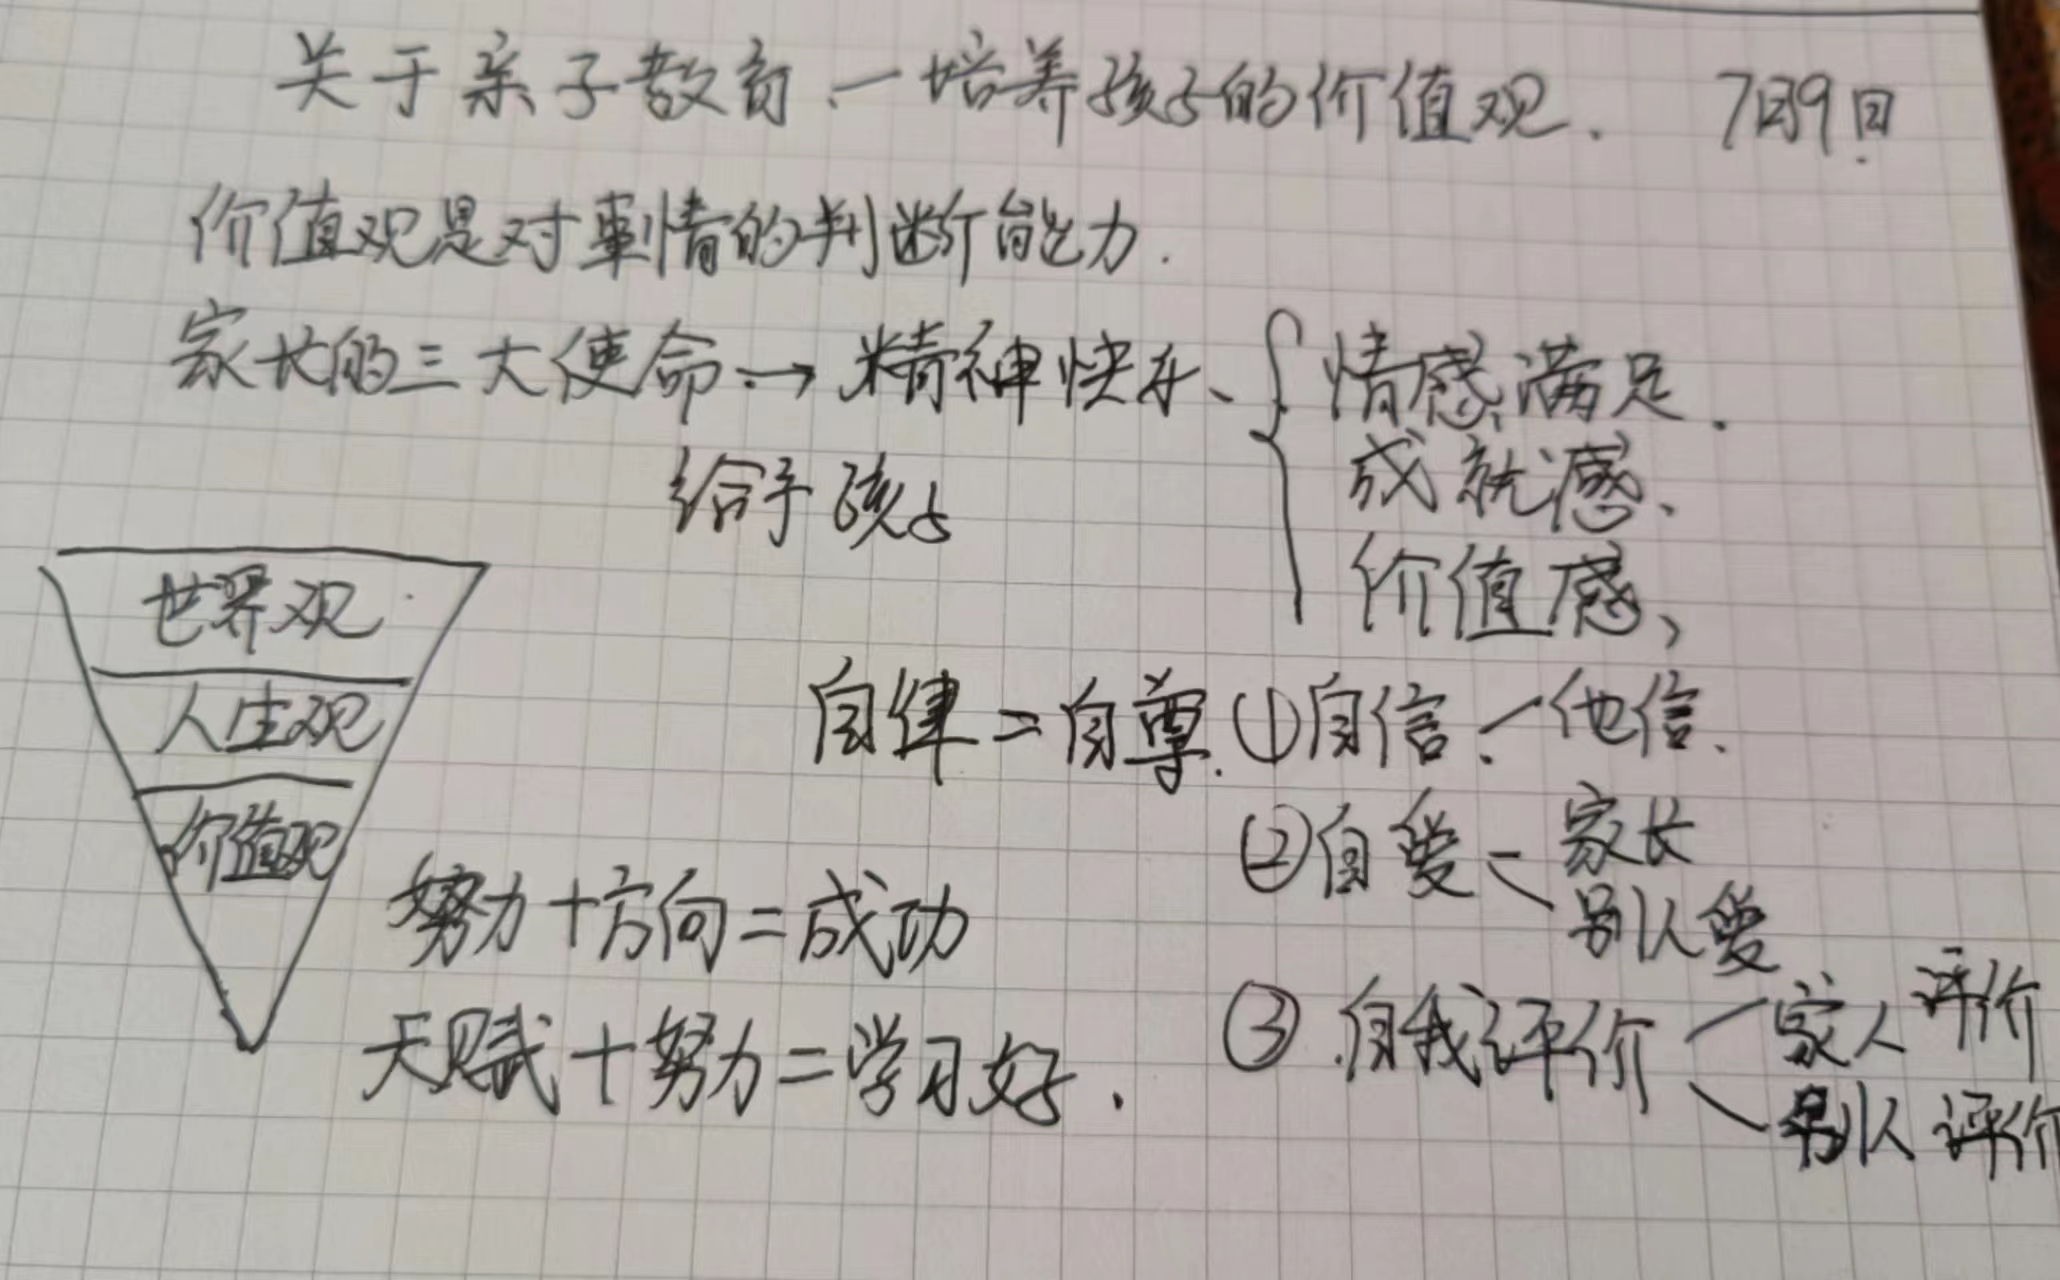 关于亲子教育、一培养孩子的价值观. 7月9日.
价值观是对事情的判断能力.
家长的三大使命→精神快乐、{情感满足.
成就感、
给予孩子
价值感、
世界观
人生观
价值观
自律=自尊.①自信-他信、
②自爱-家长
别人爱
努力+方向=成功
③.自我评价 家人评价
别人评价
天赋+努力=学习好.